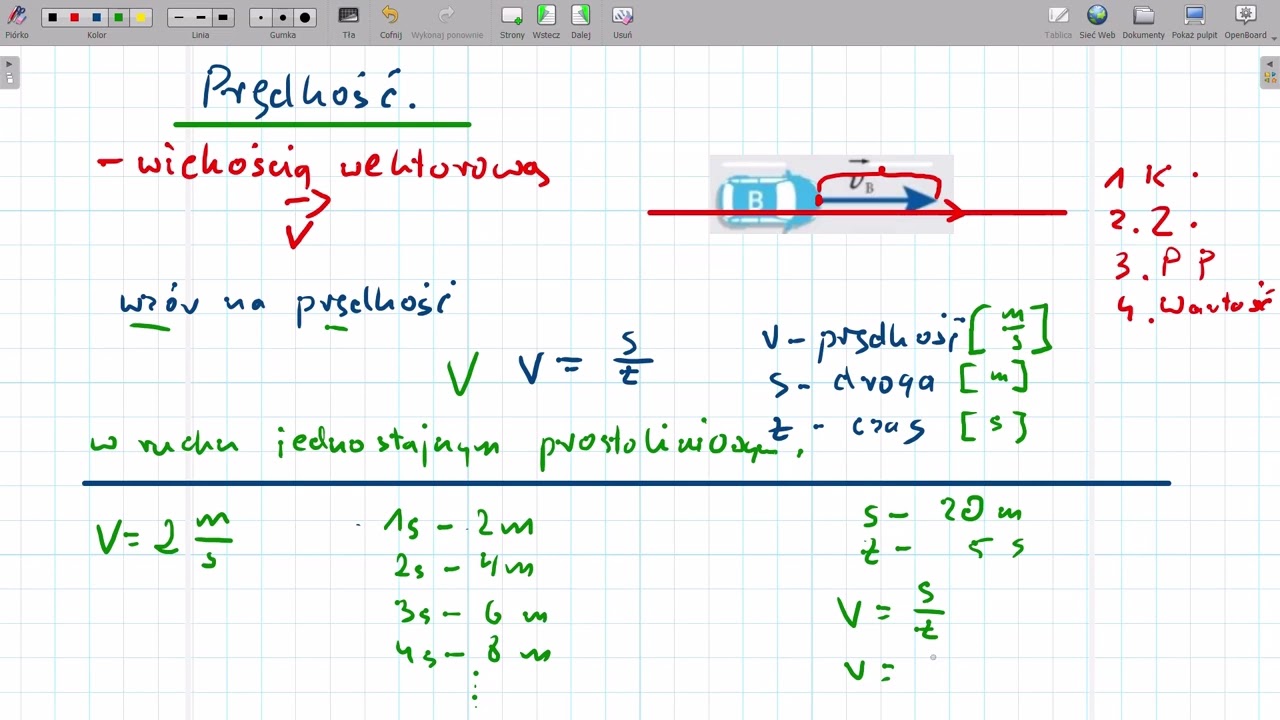 Piórko
Kolor
Linia
Gumka
Tła
Cofnij
Wykonaj ponownie
Strony
Wstecz
Dalej
Usuń
Tablica
Sieć Web
Dokumenty
Pokaż pulpit
OpenBoard
Prędkość.
- wielkością wektorową
V
B
υB
1 K .
2. Z .
3. P P
4. Wartość
wzór na prędkość
V V = s/t
v - prędkość [m/s]
s - droga [m]
t - czas [s]
w ruchu jednostajnym prostoliniowym.
V = 2 m/s
1s - 2m
2s - 4m
3s - 6 m
4s - 8 m
s - 20 m
t - 5 s
V = s/t
V =